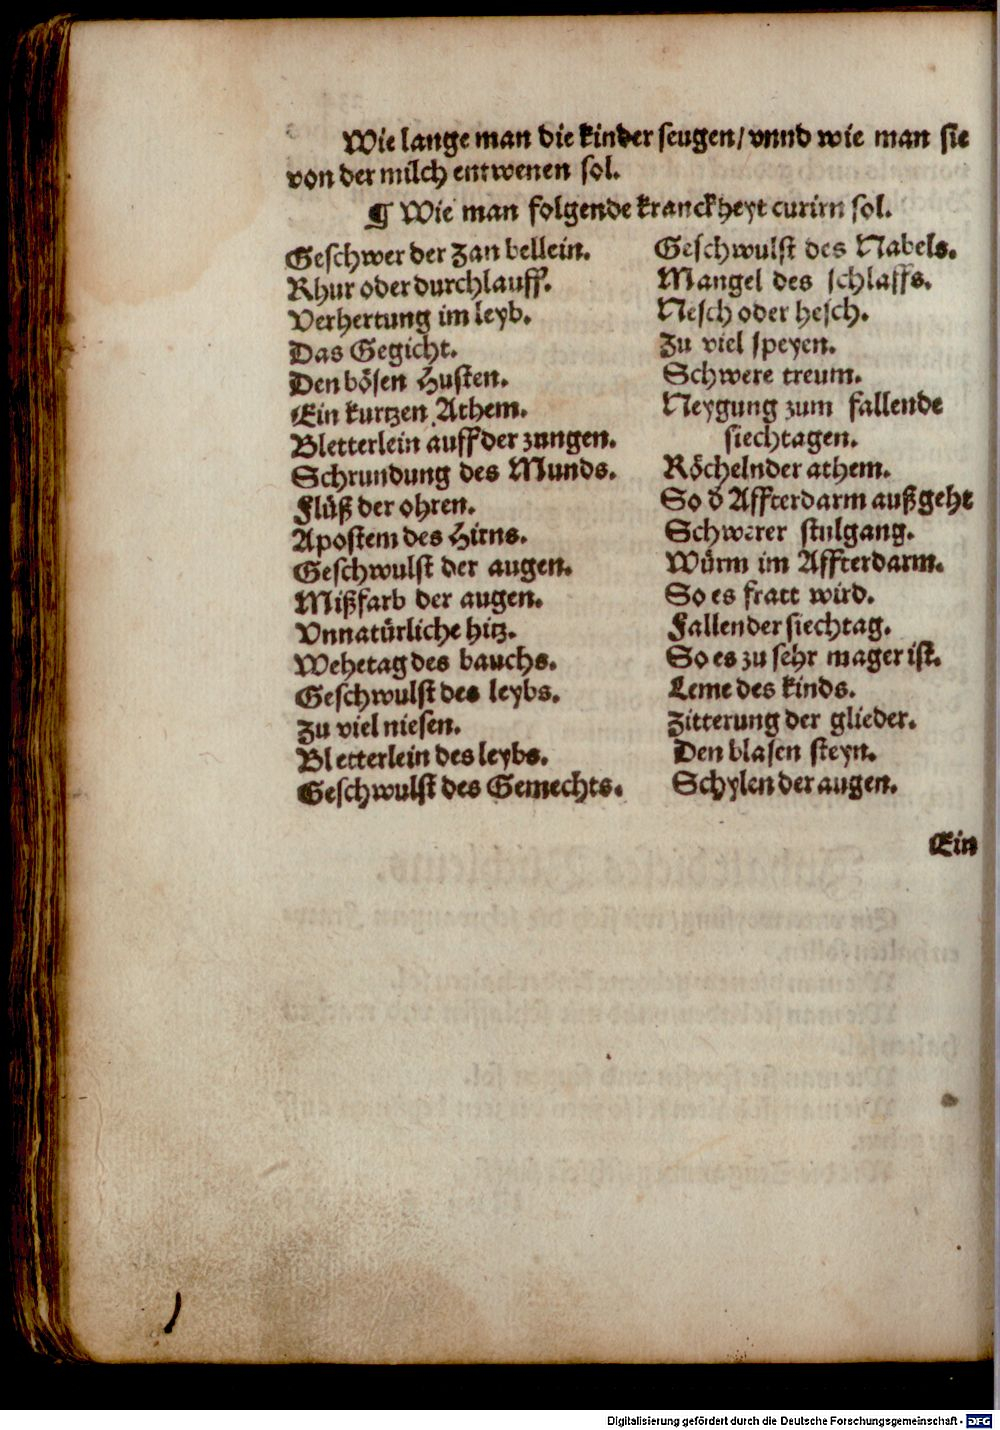 Wie lange man die kinder seugen/ vnnd wie man sie
von der milch entwenen sol.
¶ Wie man folgende kranckheyt curirn sol.
Geschwer der Zan bellein.
Rhur oder durchlauff.
Verhertung im leyb.
Das Gegicht.
Den bösen Husten.
Ein kurtzen Athem.
Bletterlein auff der zungen.
Schrundung des Munds.
Flüß der ohren.
Apostem des Hirns.
Geschwulst der augen.
Mißfarb der augen.
Vnnatürliche hitz.
Wehetag des bauchs.
Geschwulst des leybs.
Zu viel niesen.
Bletterlein des leybs.
Geschwulst des Gemechts.
Geschwulst des Nabels.
Mangel des schlaffs.
Nesch oder hesch.
Zu viel speyen.
Schwere treum.
Neygung zum fallende
siechtagen.
Röchelnder athem.
So d̕ Affterdarm außgeht
Schwerer stulgang.
Würm im Affterdarm.
So es fratt wird.
Fallender siechtag.
So es zu sehr mager ist.
Leme des kinds.
Zitterung der glieder.
Den blasen steyn.
Schylen der augen.
Ein
Digitalisierung gefördert durch die Deutsche Forschungsgemeinschaft - DFG